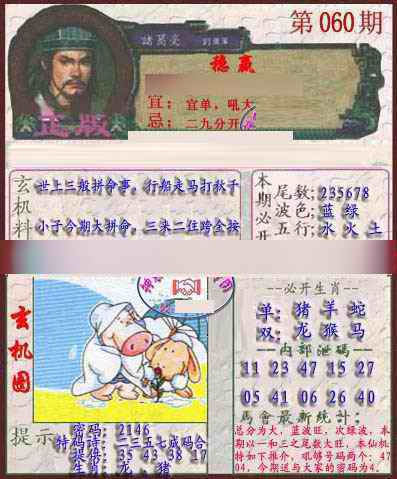 第060期
諸葛亮
稳赢
宜：宜单，吼大
忌：二九分开
正版
玄机料
世上三般拼命事，行船走马打秋千
小子今期大拼命，三来二往跨全按
本期必开
尾数：235678
波色：蓝 绿
五行：水 火 土
玄机图
必开生肖
单：猪 羊 蛇
双：龙 猴 马
内部泄码
11 23 47 15 27
05 41 06 26 40
馬會最新統計：
总分为大，蓝波旺，次绿波，本
期以一和三之尾数大旺，本仙机
特如下推介，吼够号码两个：47
04，今期送与大家的密码为4.
提示
密码：2146
特码诗：二三五七成码合
提供：35 43 38 17
生肖：龙、猪